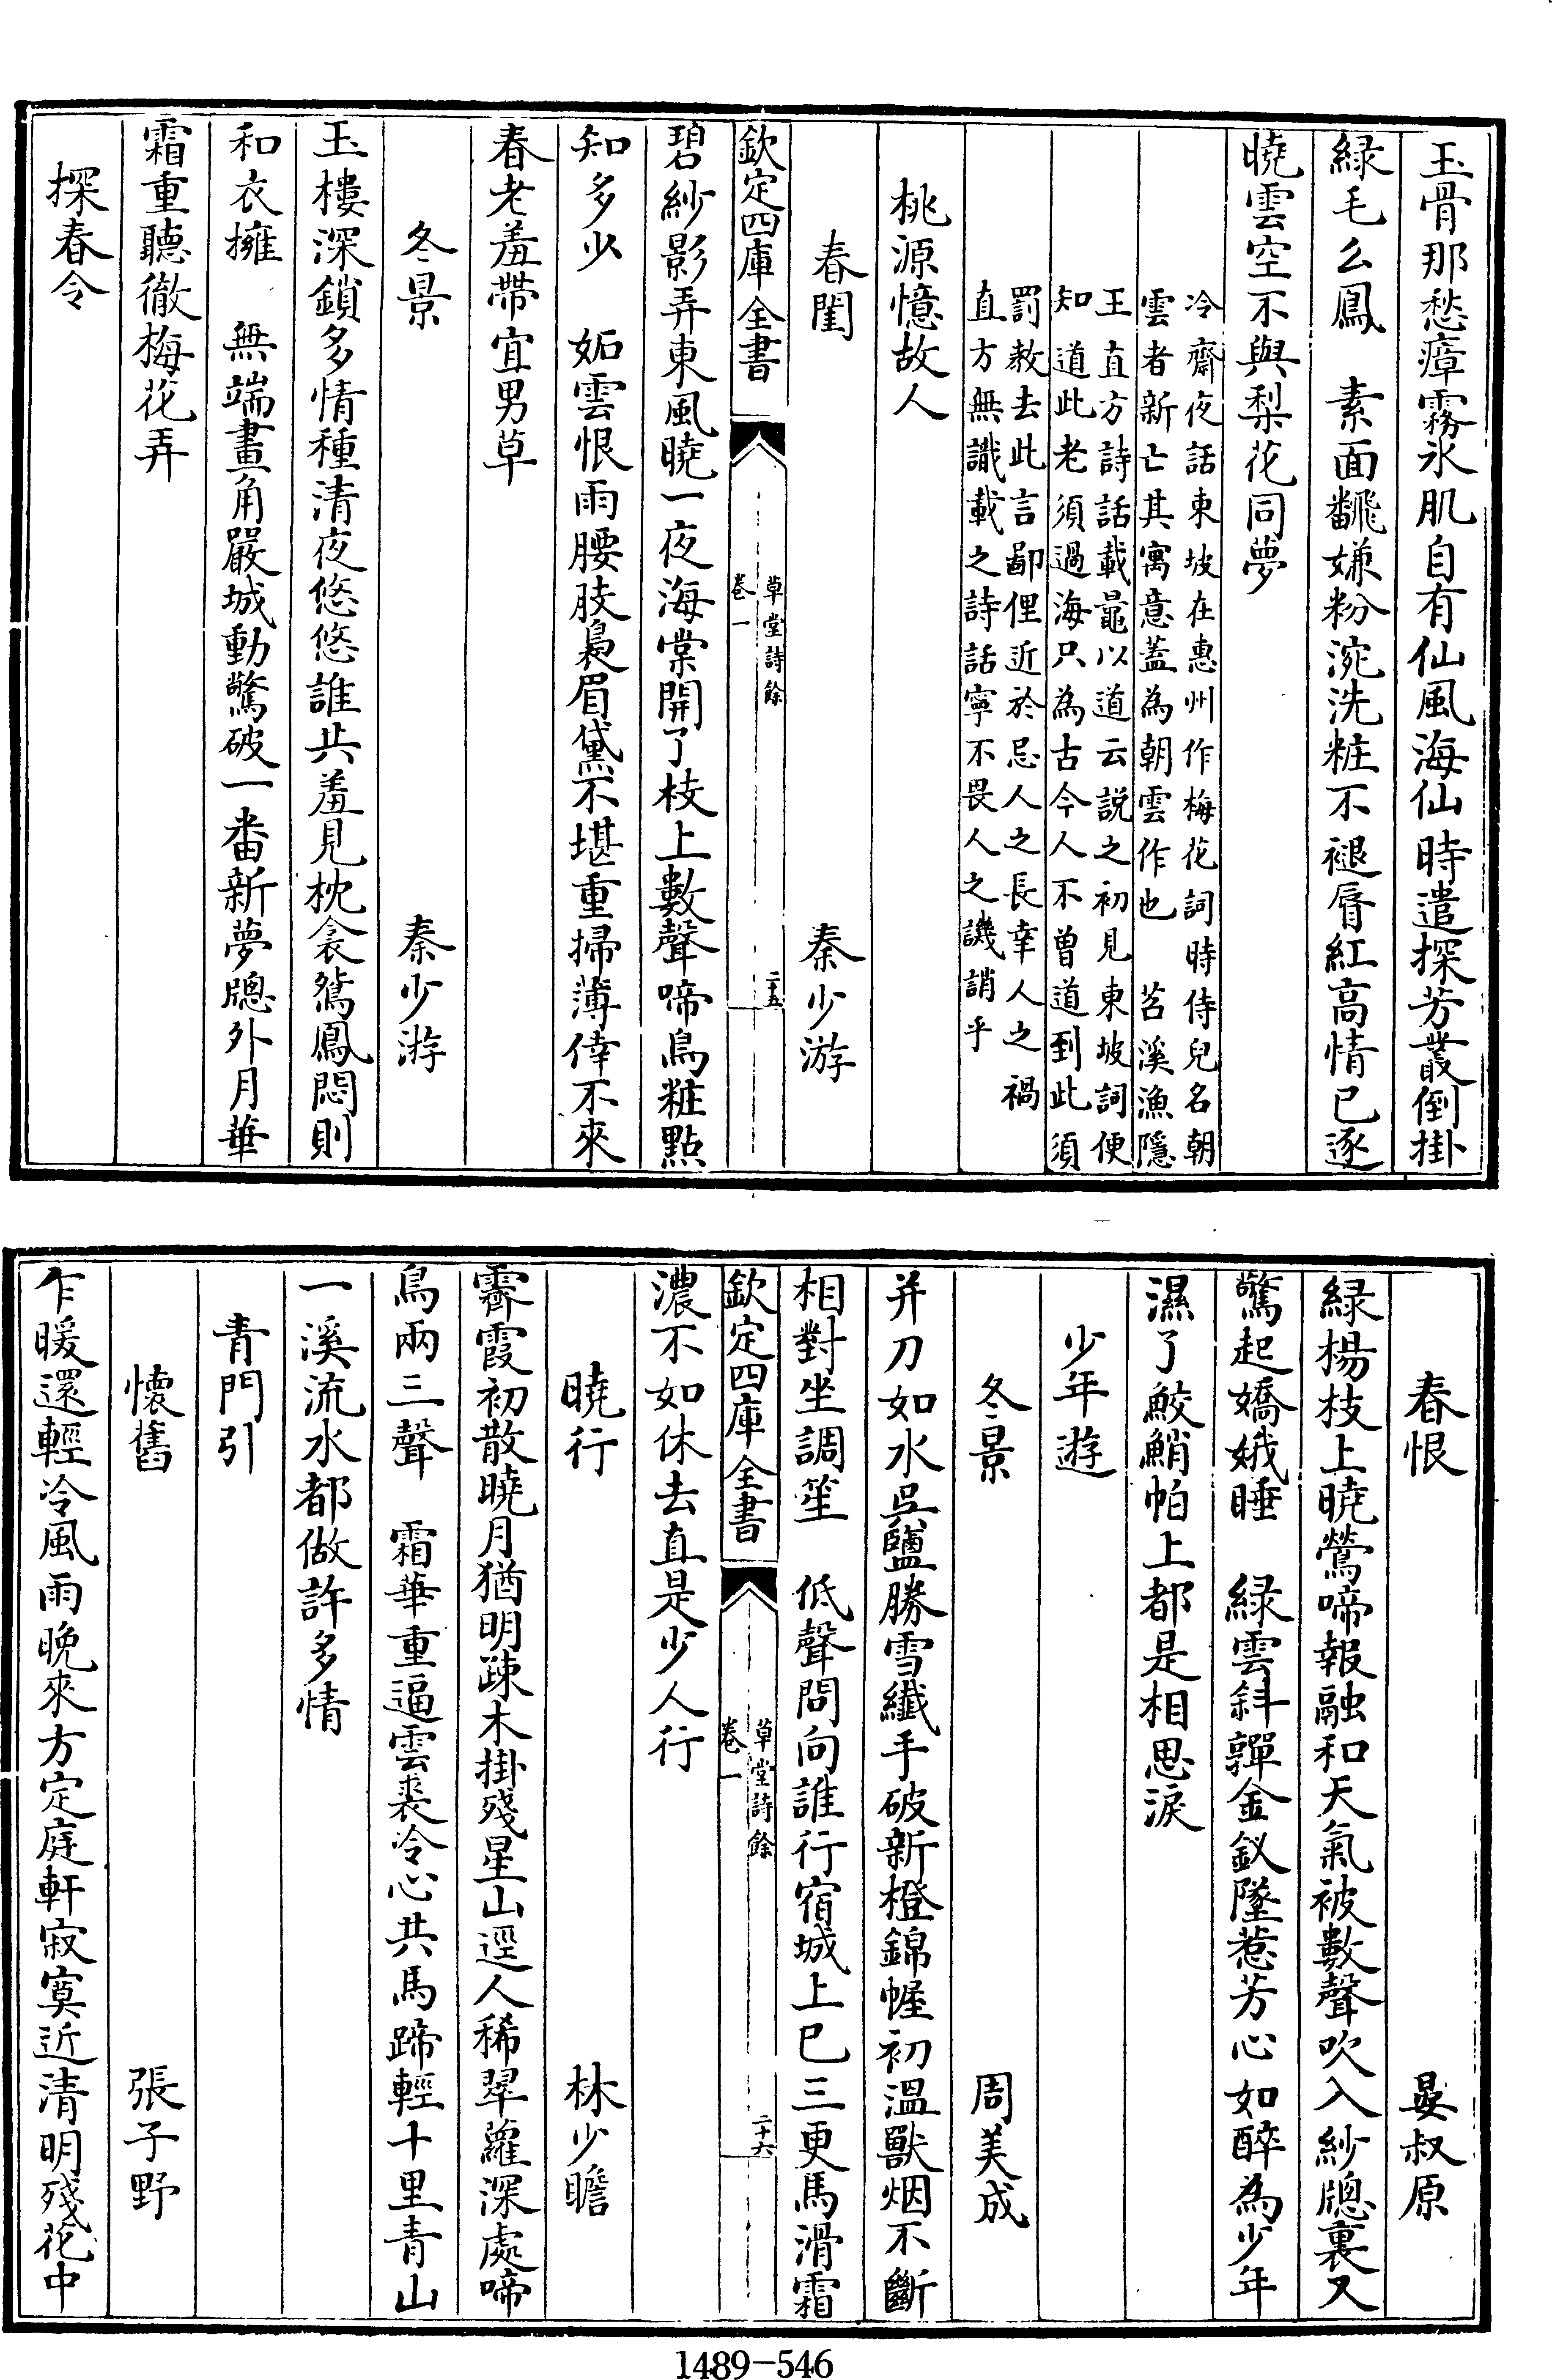 玉骨那愁瘴霧氷肌自有仙風海仙時遣探芳叢倒掛
緑毛么鳳　素面飜嫌粉涴洗粧不褪脣紅高情已逐
曉雲空不與梨花同夢
冷齋夜話東坡在惠州作梅花詞時侍兒名朝
雲者新亡其寓意葢為朝雲作也　苕溪漁隠
王直方詩話載鼂以道云説之初見東坡詞便
知道此老須過海只為古今人不曽道到此須
罰教去此言鄙俚近於忌人之長幸人之禍
直方無識載之詩話寧不畏人之譏誚乎
桃源憶故人
春閨　秦少游
欽定四庫全書　草堂詩餘　卷一　二十五
碧紗影弄東風曉一夜海棠開了枝上數聲啼鳥粧點
知多少　妬雲恨雨腰肢裊眉黛不堪重掃薄倖不來
春老羞帶宜男草
冬景　秦少游
玉樓深鎖多情種清夜悠悠誰共羞見枕衾鴛鳳悶則
和衣擁　無端畫角嚴城動驚破一番新夢牕外月華
霜重聽徹梅花弄
探春令
春恨　晏叔原
緑楊枝上曉鶯啼報融和天氣被數聲吹入紗牕裏又
驚起嬌娥睡　緑雲斜嚲金釵墜惹芳心如醉為少年
濕了鮫鮹帕上都是相思淚
少年遊
冬景　周美成
并刀如水吳鹽勝雪纎手破新橙錦幄初温獸烟不斷
相對坐調笙　低聲問向誰行宿城上已三更馬滑霜
欽定四庫全書　草堂詩餘　卷一　二十六
濃不如休去直是少人行
曉行　林少瞻
霽霞初散曉月猶明疎木掛殘星山逕人稀翠蘿深處啼
鳥兩三聲　霜華重逼雲裘冷心共馬蹄輕十里青山
一溪流水都做許多情
青門引
懷舊　張子野
乍暖還輕冷風雨晚來方定庭軒寂寞近清明殘花中
1489-546